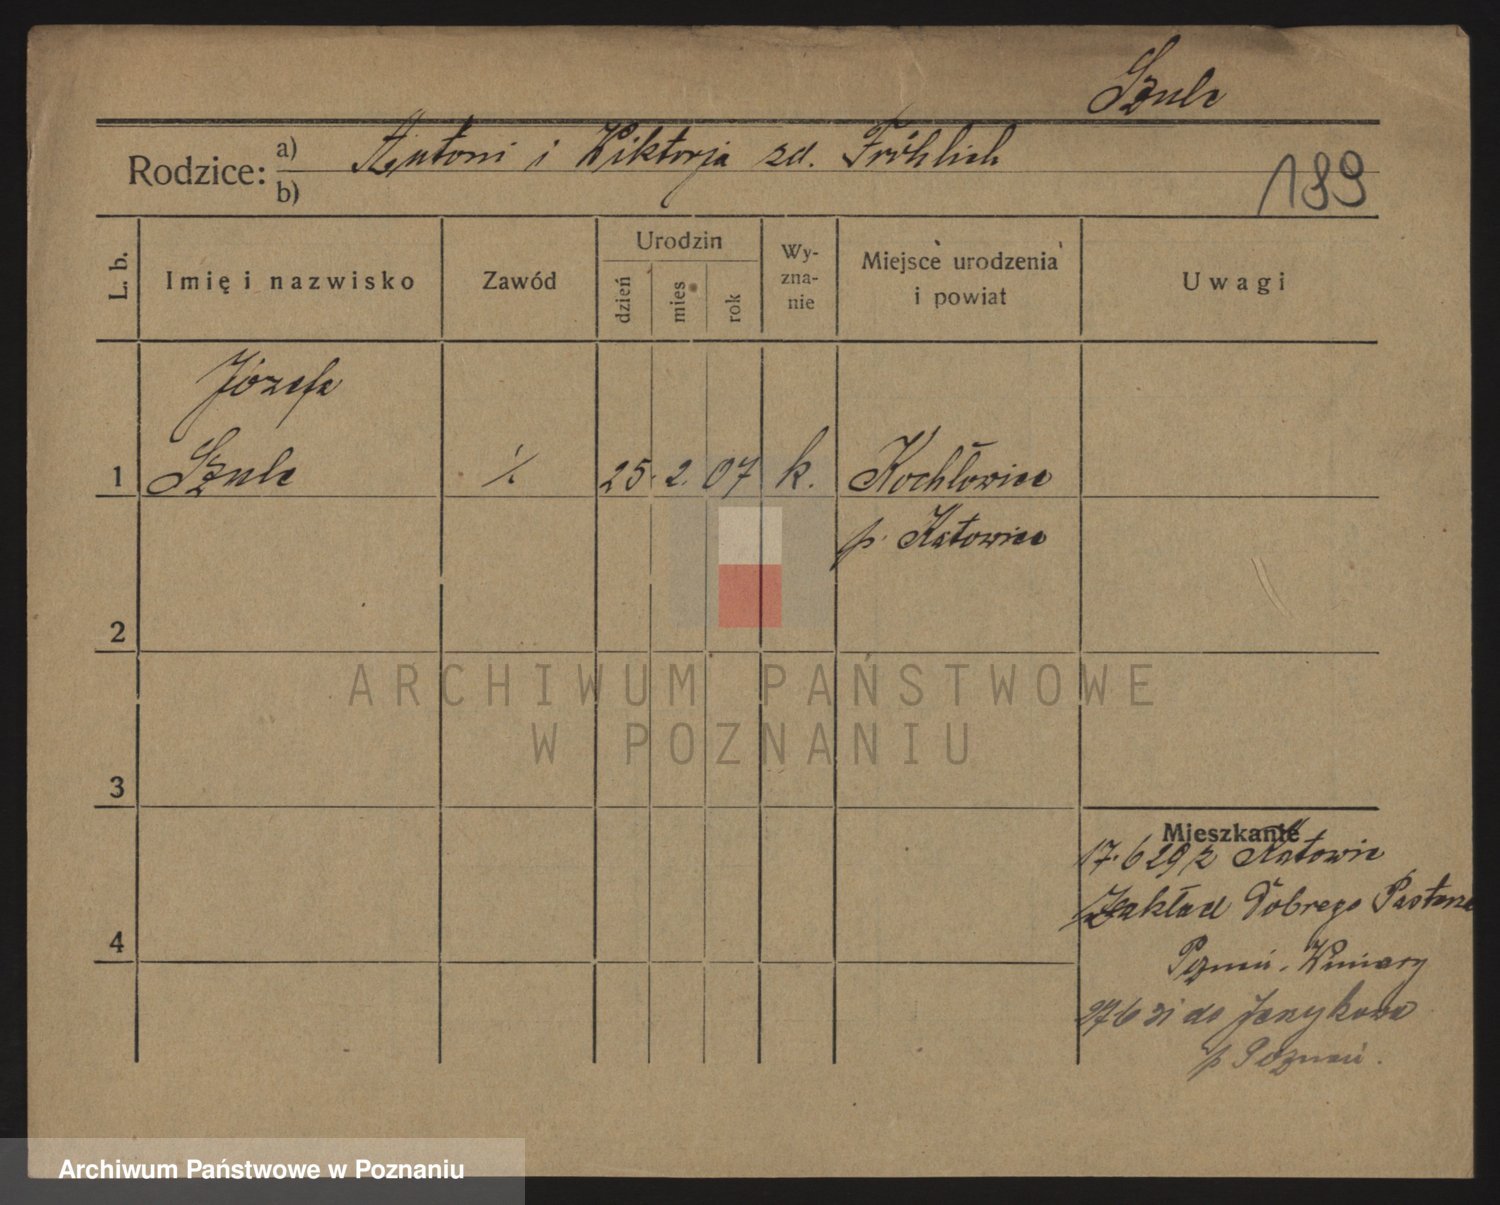 Szulc
Rodzice: a) Antoni i Wiktorja zd. Fröhlich
b)
189
L. b.
Imię i nazwisko
Zawód
Urodzin
dzień
mies
rok
Wy-
zna-
nie
Miejsce urodzenia
i powiat
Uwagi
Józefa
1 Szulc ./. 25. 2. 07 k. Kochłowice
p. Katowice
2
ARCHIWUM PAŃSTWOWE
W POZNANIU
3
Mieszkanie
17.6 29 z Katowic
Zakład Dobrego Pasterza
4
Poznań. Winiary
27.6 31 do
p Poznań.
Archiwum Państwowe w Poznaniu